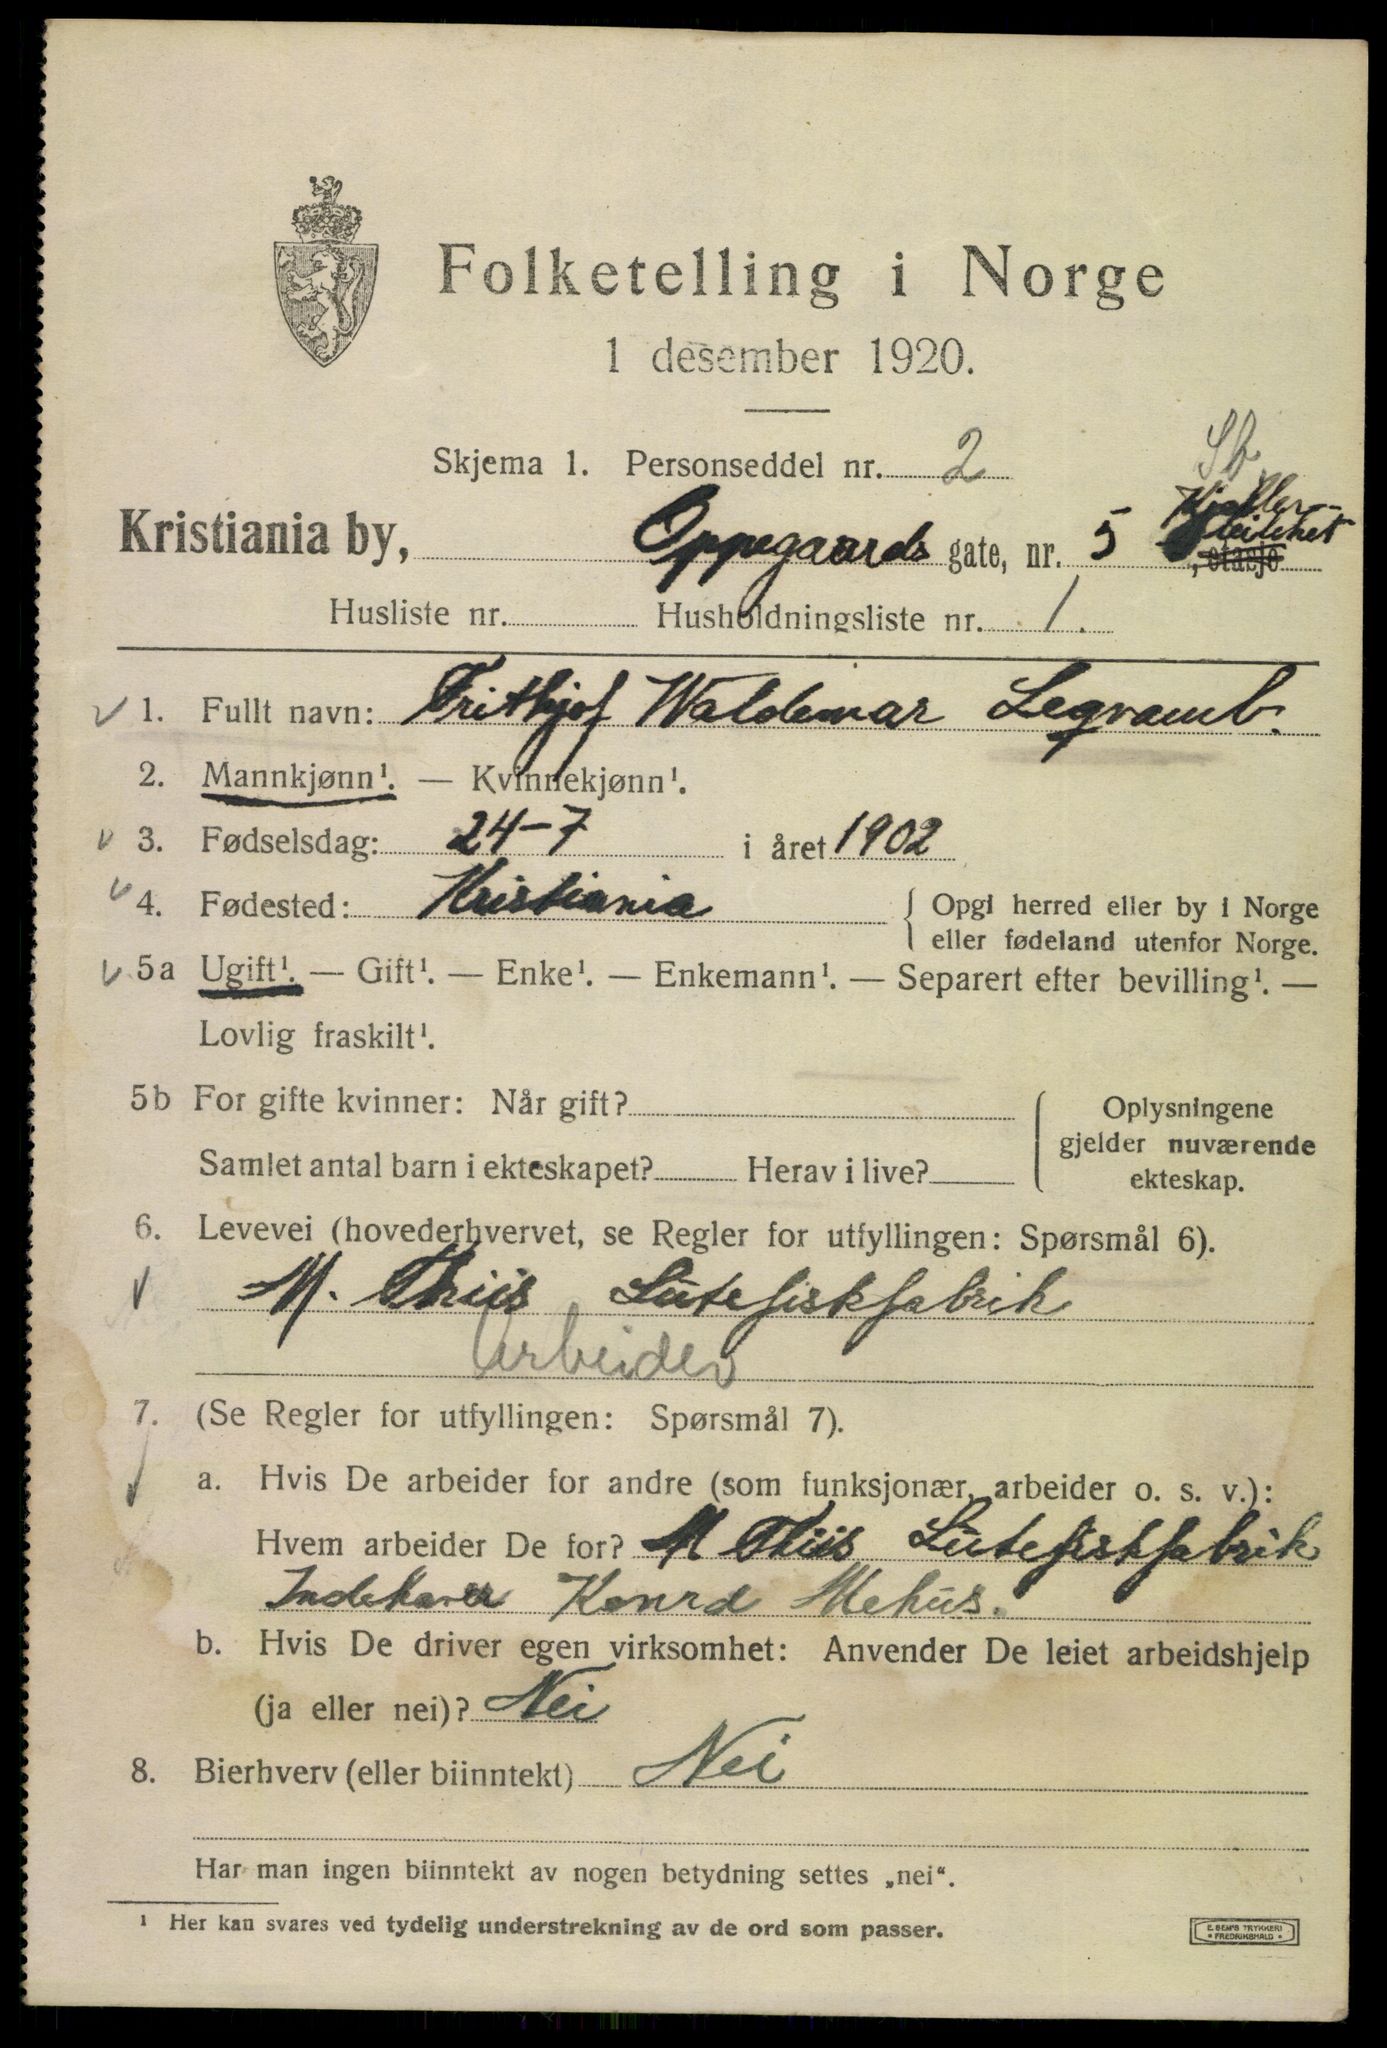 Folketelling i Norge
1 desember 1920.
Skjema 1. Personseddel nr. 2
Kristiania by, Oppegaards gate, nr. 5, etasje
Husliste nr. Husholdningsliste nr. 1.
1. Fullt navn: Frithjof Waldemar Legvamb.
2. Mannkjønn¹. — Kvinnekjønn¹.
3. Fødselsdag: 24-7 i året 1902
4. Fødested: Kristiania { Opgi herred eller by i Norge
eller fødeland utenfor Norge.
5a Ugift¹. — Gift¹. — Enke¹. — Enkemann¹. — Separert efter bevilling¹. —
Lovlig fraskilt¹.
5b For gifte kvinner: Når gift?
Samlet antal barn i ekteskapet? Herav i live?
{ Oplysningene
gjelder nuværende
ekteskap.
6. Levevei (hovederhvervet, se Regler for utfyllingen: Spørsmål 6).
M. Thiis Lutefiskfabrik
Arbeider
7. (Se Regler for utfyllingen: Spørsmål 7).
a. Hvis De arbeider for andre (som funksjonær, arbeider o. s. v.):
Hvem arbeider De for? M Thiis Lutefiskfabrik
Indehaver Konrd Mehus.
b. Hvis De driver egen virksomhet: Anvender De leiet arbeidshjelp
(ja eller nei)? Nei
8. Bierhverv (eller biinntekt) Nei
Har man ingen biinntekt av nogen betydning settes „nei“.
¹ Her kan svares ved tydelig understrekning av de ord som passer.
E. SEM'S TRYKKERI
• FREDRIKSHALD •